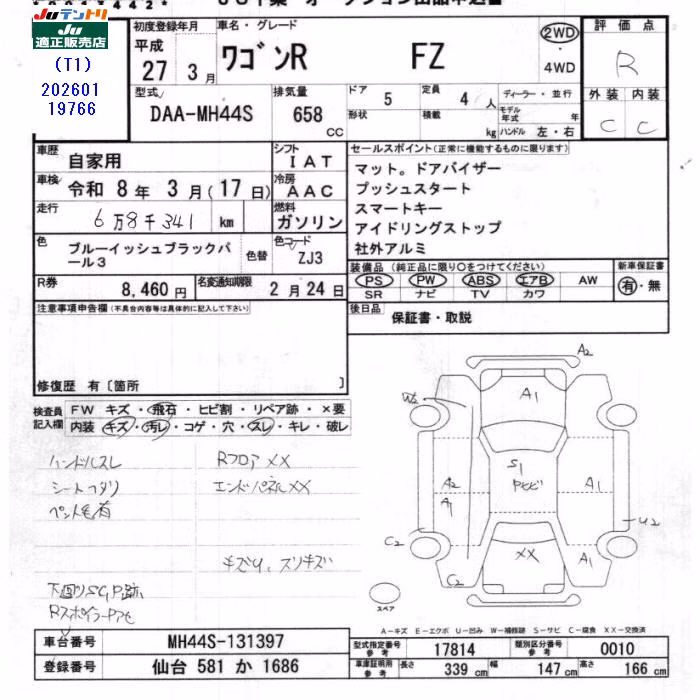 JUテントリ
Ju
適正販売店
(T1)
202601
19766
初度登録年月
平成
27 3月
車名・グレード
ワゴンR FZ
2WD
・
4WD
評価点
R
型式
DAA-MH44S
排気量
658
CC
ドア
5
形状
定員
4 人
積載
kg
ディーラー・並行
モデル年式 年
ハンドル 左・右
外装 内装
C C
車歴
自家用
シフト
IAT
車検
令和 8 年 3 月(17 日)
冷房
AAC
走行
6万8千341 km
燃料
ガソリン
色
ブルーイッシュブラックパール3
色替
色コード
ZJ3
R券
8,460 円
名変通知期限
2 月 24 日
セールスポイント(正常に機能するものに限ります)
マット。ドアバイザー
プッシュスタート
スマートキー
アイドリングストップ
社外アルミ
装備品(純正品に限り○をつけてください)
PS PW ABS エアB AW
SR ナビ TV カワ
新車保証書
有・無
後日品
保証書・取説
注意事項申告欄(不具合内容等は具体的に記入して下さい)
修復歴 有〔箇所 〕
検査員記入欄
FW キズ・飛石・ヒビ割・リペア跡・×要
内装 キズ・汚レ・コゲ・穴・スレ・キレ・破レ
ハンドルスレ
シートヘタリ
ペット毛有
RフロアXX
エンドパネルXX
キズU、スリキズ
下回りSC,P跡
RスポイラーPアセ
A2
A1
W2
S1
Pヒビ
A2
A1
A1
U2
C2
XX
A1
C2
スペア
A-キズ E-エクボ U-凹み W-補修跡 S-サビ C-腐食 XX-交換済
車台番号
MH44S-131397
登録番号
仙台 581 か 1686
型式指定番号
参考
17814
類別区分番号
参考
0010
車庫証明用
参考
長さ 339 cm 幅 147 cm 高さ 166 cm